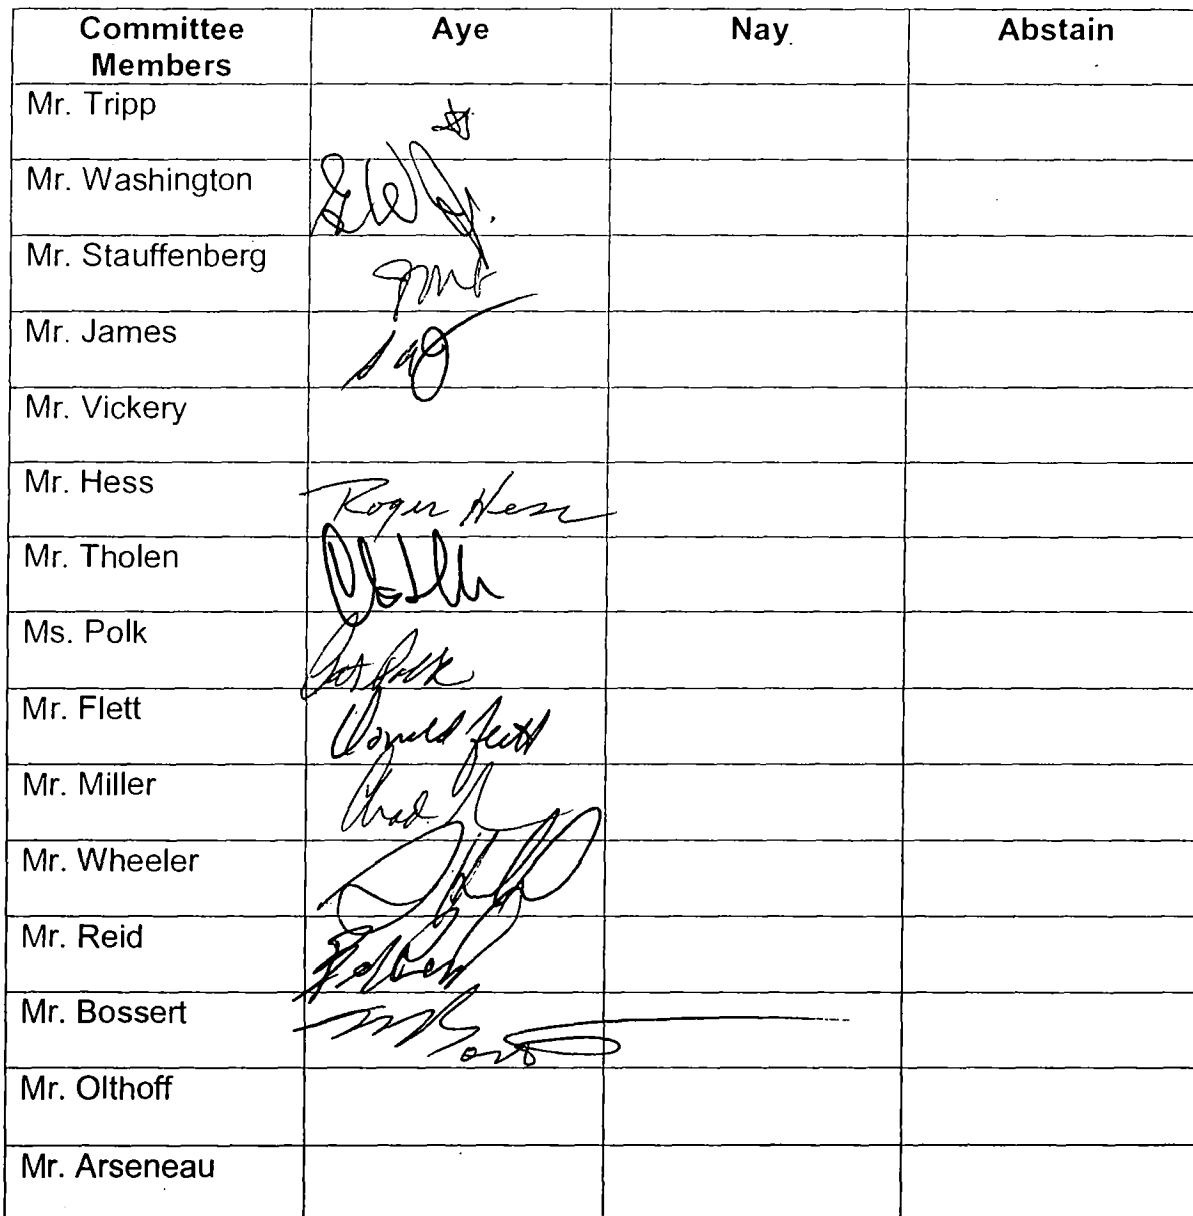 Committee Members Aye Nay Abstain
Mr. Tripp
Mr. Washington
Mr. Stauffenberg
Mr. James
Mr. Vickery
Mr. Hess Roger Hess
Mr. Tholen
Ms. Polk Pat Polk
Mr. Flett Donald Flett
Mr. Miller Chad
Mr. Wheeler
Mr. Reid
Mr. Bossert
Mr. Olthoff
Mr. Arseneau